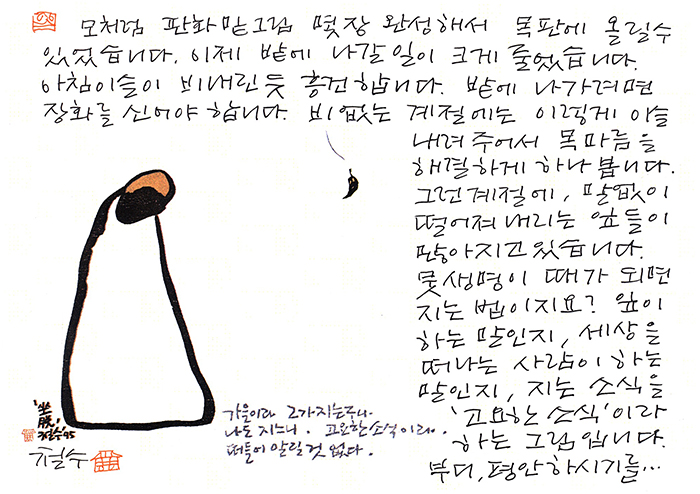 모처럼 판화 밑그림 몇 장 완성해서 목판에 올릴 수
있었습니다. 이제 밭에 나갈 일이 크게 줄었습니다.
아침이슬이 비내린 듯 흥건합니다. 밭에 나가려면
장화를 신어야 합니다. 비 없는 계절에는 이렇게 이슬
내려 주어서 목마름을
해결하게 하나 봅니다.
그런 계절에, 말없이
떨어져 내리는 잎들이
많아지고 있습니다.
뭇 생명이 때가 되면
지는 법이지요? 잎이
하는 말인지, 세상을
떠나는 사람이 하는
말인지, 지는 소식을
'고요한 소식'이라
하는 그림입니다.
부디, 평안하시기를...
가을이라 그가 지는구나.
나도 지느니. 고요한 소식이라.
떠들어 알릴 것 없다.
'坐脫'
철수 '95
철수